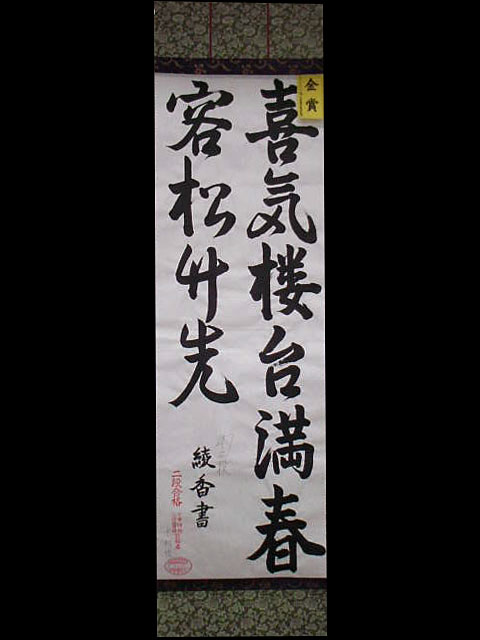 金賞
喜気楼台満春
容松竹先
綾香書
二段合格